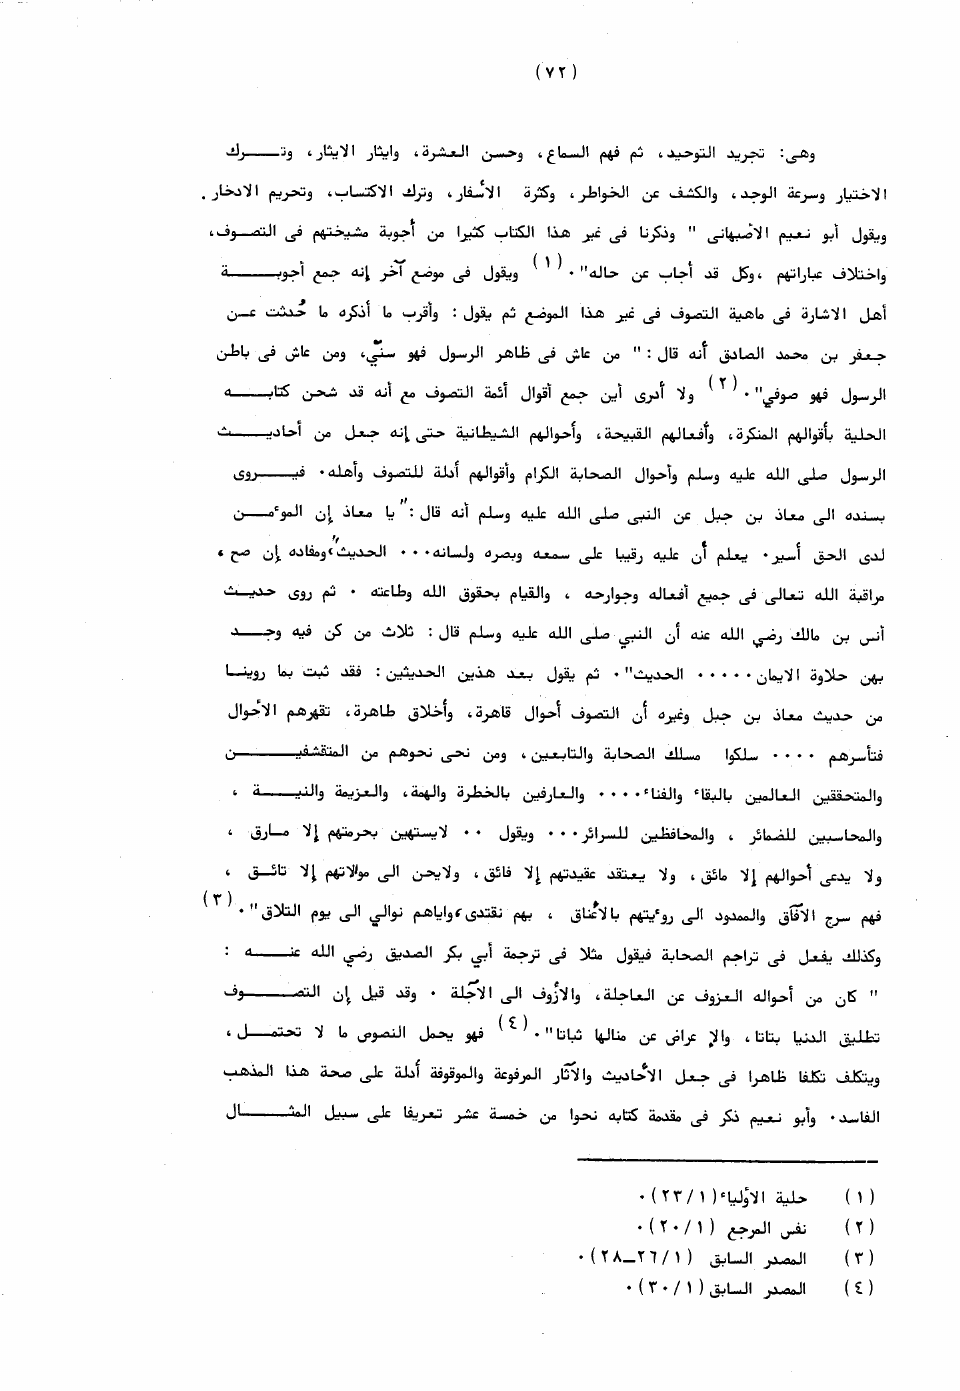 (٧٢)
وهى: تجريد التوحيد، ثم فهم السماع، وحسن العشرة، وايثار الايثار، وترك
الاختيار وسرعة الوجد، والكشف عن الخواطر، وكثرة الأسفار، وترك الاكتساب، وتحريم الادخار.
ويقول أبو نعيم الأصبهانى " وذكرنا فى غير هذا الكتاب كثيرا من أجوبة مشيختهم فى التصوف،
واختلاف عباراتهم ،وكل قد أجاب عن حاله". (١) ويقول فى موضع آخر إنه جمع أجوبة
أهل الاشارة فى ماهية التصوف فى غير هذا الموضع ثم يقول: وأقرب ما أذكره ما حُدثت عن
جعفر بن محمد الصادق أنه قال: " من عاش فى ظاهر الرسول فهو سنّي، ومن عاش فى باطن
الرسول فهو صوفي". (٢) ولا أدرى أين جمع أقوال أئمة التصوف مع أنه قد شحن كتابه
الحلية بأقوالهم المنكرة، وأفعالهم القبيحة، وأحوالهم الشيطانية حتى إنه جعل من أحاديث
الرسول صلى الله عليه وسلم وأحوال الصحابة الكرام وأقوالهم أدلة للتصوف وأهله. فيروى
بسنده الى معاذ بن جبل عن النبى صلى الله عليه وسلم أنه قال: "يا معاذ إن الموٴمن
لدى الحق أسير. يعلم أن عليه رقيبا على سمعه وبصره ولسانه... الحديث"، ومفاده إن صح ،
مراقبة الله تعالى فى جميع أفعاله وجوارحه ، والقيام بحقوق الله وطاعته . ثم روى حديث
أنس بن مالك رضي الله عنه أن النبي صلى الله عليه وسلم قال: ثلاث من كن فيه وجد
بهن حلاوة الايمان..... الحديث". ثم يقول بعد هذين الحديثين: فقد ثبت بما روينا
من حديث معاذ بن جبل وغيره أن التصوف أحوال قاهرة، وأخلاق طاهرة، تقهرهم الأحوال
فتأسرهم .... سلكوا مسلك الصحابة والتابعين، ومن نحى نحوهم من المتقشفين
والمتحققين العالمين بالبقاء والفناء.... والعارفين بالخطرة والهمة، والعزيمة والنية ،
والمحاسبين للضمائر ، والمحافظين للسرائر... ويقول .. لايستهين بحرمتهم إلا مارق ،
ولا يدعى أحوالهم إلا مائق، ولا يعتقد عقيدتهم إلا فائق، ولايحن الى موالاتهم إلا تائق ،
فهم سرج الآفاق والممدود الى روٴيتهم بالأعناق ، بهم نقتدى، واياهم نوالي الى يوم التلاق". (٣)
وكذلك يفعل فى تراجم الصحابة فيقول مثلا فى ترجمة أبي بكر الصديق رضي الله عنه :
" كان من أحواله العزوف عن العاجلة، والأزوف الى الآجلة . وقد قيل إن التصوف
تطليق الدنيا بتاتا، والإ عراض عن منالها ثباتا". (٤) فهو يحمل النصوص ما لا تحتمل،
ويتكلف تكلفا ظاهرا فى جعل الأحاديث والآثار المرفوعة والموقوفة أدلة على صحة هذا المذهب
الفاسد. وأبو نعيم ذكر فى مقدمة كتابه نحوا من خمسة عشر تعريفا على سبيل المثال
(١) حلية الأولياء (٢٣/١).
(٢) نفس المرجع (٢٠/١).
(٣) المصدر السابق (٢٦/١ـ٢٨).
(٤) المصدر السابق (٣٠/١).